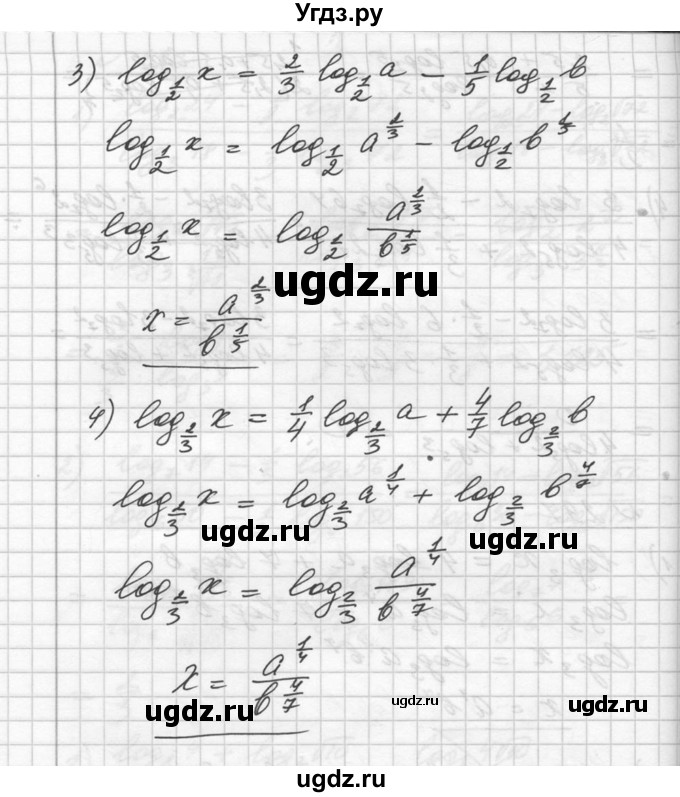 Угдз.ру
3) log_{1/2} x = 2/3 log_{1/2} a - 1/5 log_{1/2} b
log_{1/2} x = log_{1/2} a^{2/3} - log_{1/2} b^{1/5}
log_{1/2} x = log_{1/2} a^{2/3} / b^{1/5}
ugdz.ru
x = a^{2/3} / b^{1/5}
4) log_{2/3} x = 1/4 log_{2/3} a + 4/7 log_{2/3} b
log_{2/3} x = log_{2/3} a^{1/4} + log_{2/3} b^{4/7}
ugdz.ru ugdz.ru
log_{2/3} x = log_{2/3} a^{1/4} / b^{4/7}
x = a^{1/4} / b^{4/7}
ugdz.ru ugdz.ru ugdz.ru
ugdz.ru